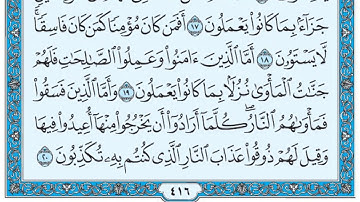 جَزَآءَۢ بِمَا كَانُوا۟ يَعْمَلُونَ ١٧ أَفَمَن كَانَ مُؤْمِنًا كَمَن كَانَ فَاسِقًا
لَّا يَسْتَوُۥنَ ١٨ أَمَّا ٱلَّذِينَ ءَامَنُوا۟ وَعَمِلُوا۟ ٱلصَّـٰلِحَـٰتِ فَلَهُمْ
جَنَّـٰتُ ٱلْمَأْوَىٰ نُزُلًۢا بِمَا كَانُوا۟ يَعْمَلُونَ ١٩ وَأَمَّا ٱلَّذِينَ فَسَقُوا۟
فَمَأْوَىٰهُمُ ٱلنَّارُ ۖ كُلَّمَآ أَرَادُوٓا۟ أَن يَخْرُجُوا۟ مِنْهَآ أُعِيدُوا۟ فِيهَا
وَقِيلَ لَهُمْ ذُوقُوا۟ عَذَابَ ٱلنَّارِ ٱلَّذِى كُنتُم بِهِۦ تُكَذِّبُونَ ٢٠
٤١٦